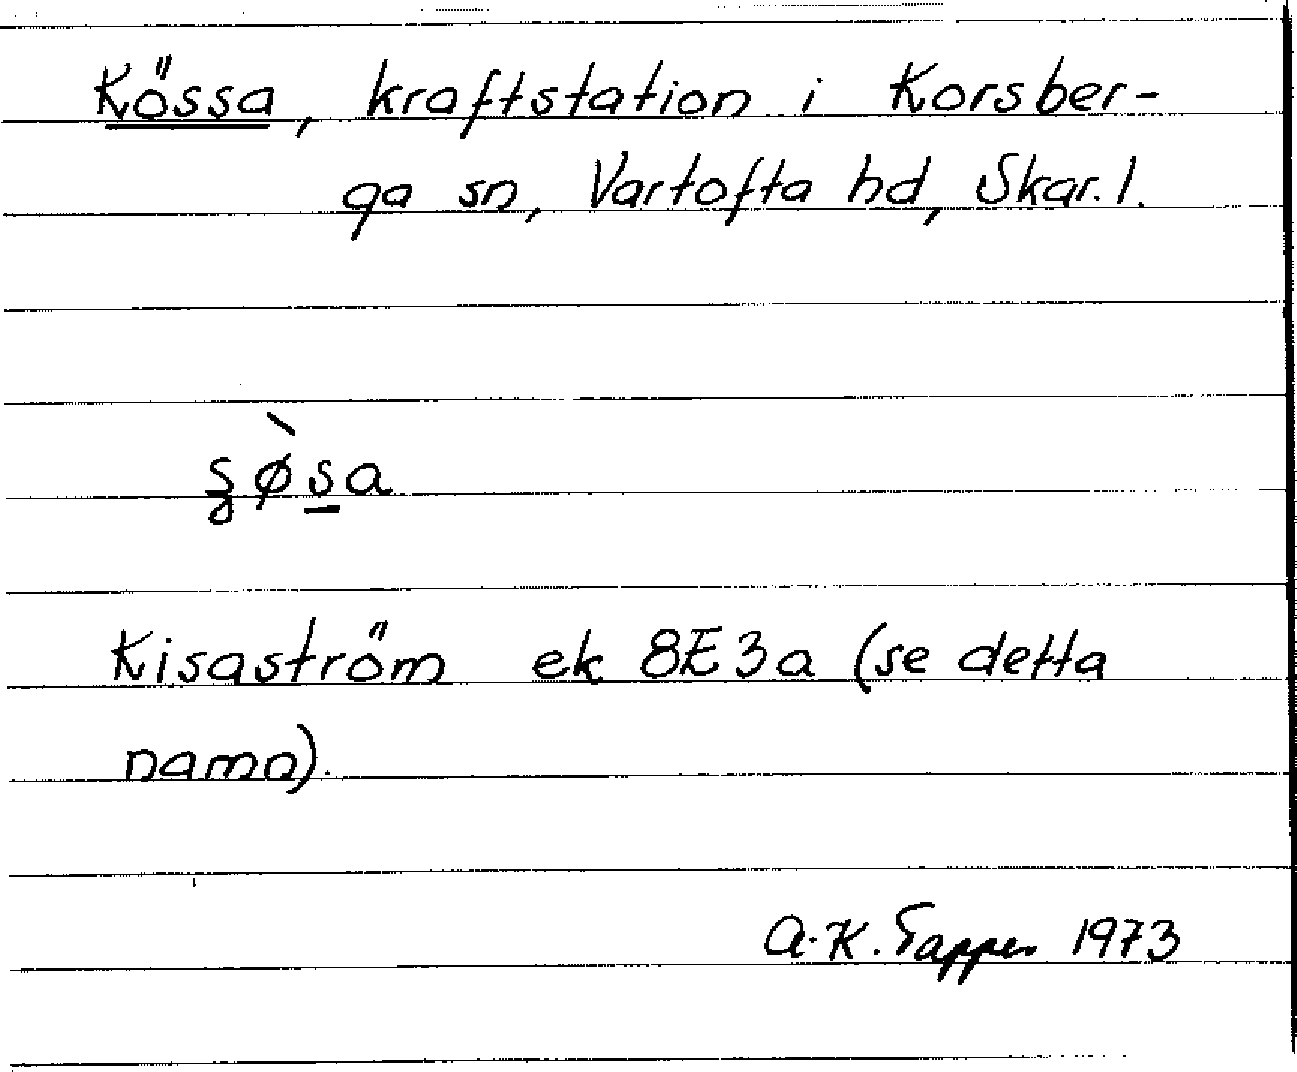 Kössa, kraftstation i Korsber-
ga sn, Vartofta hd, Skar. l.
sø̀s̲a
Kisaström ek 8E3a (se detta
namn).
A.K. Tapper 1973